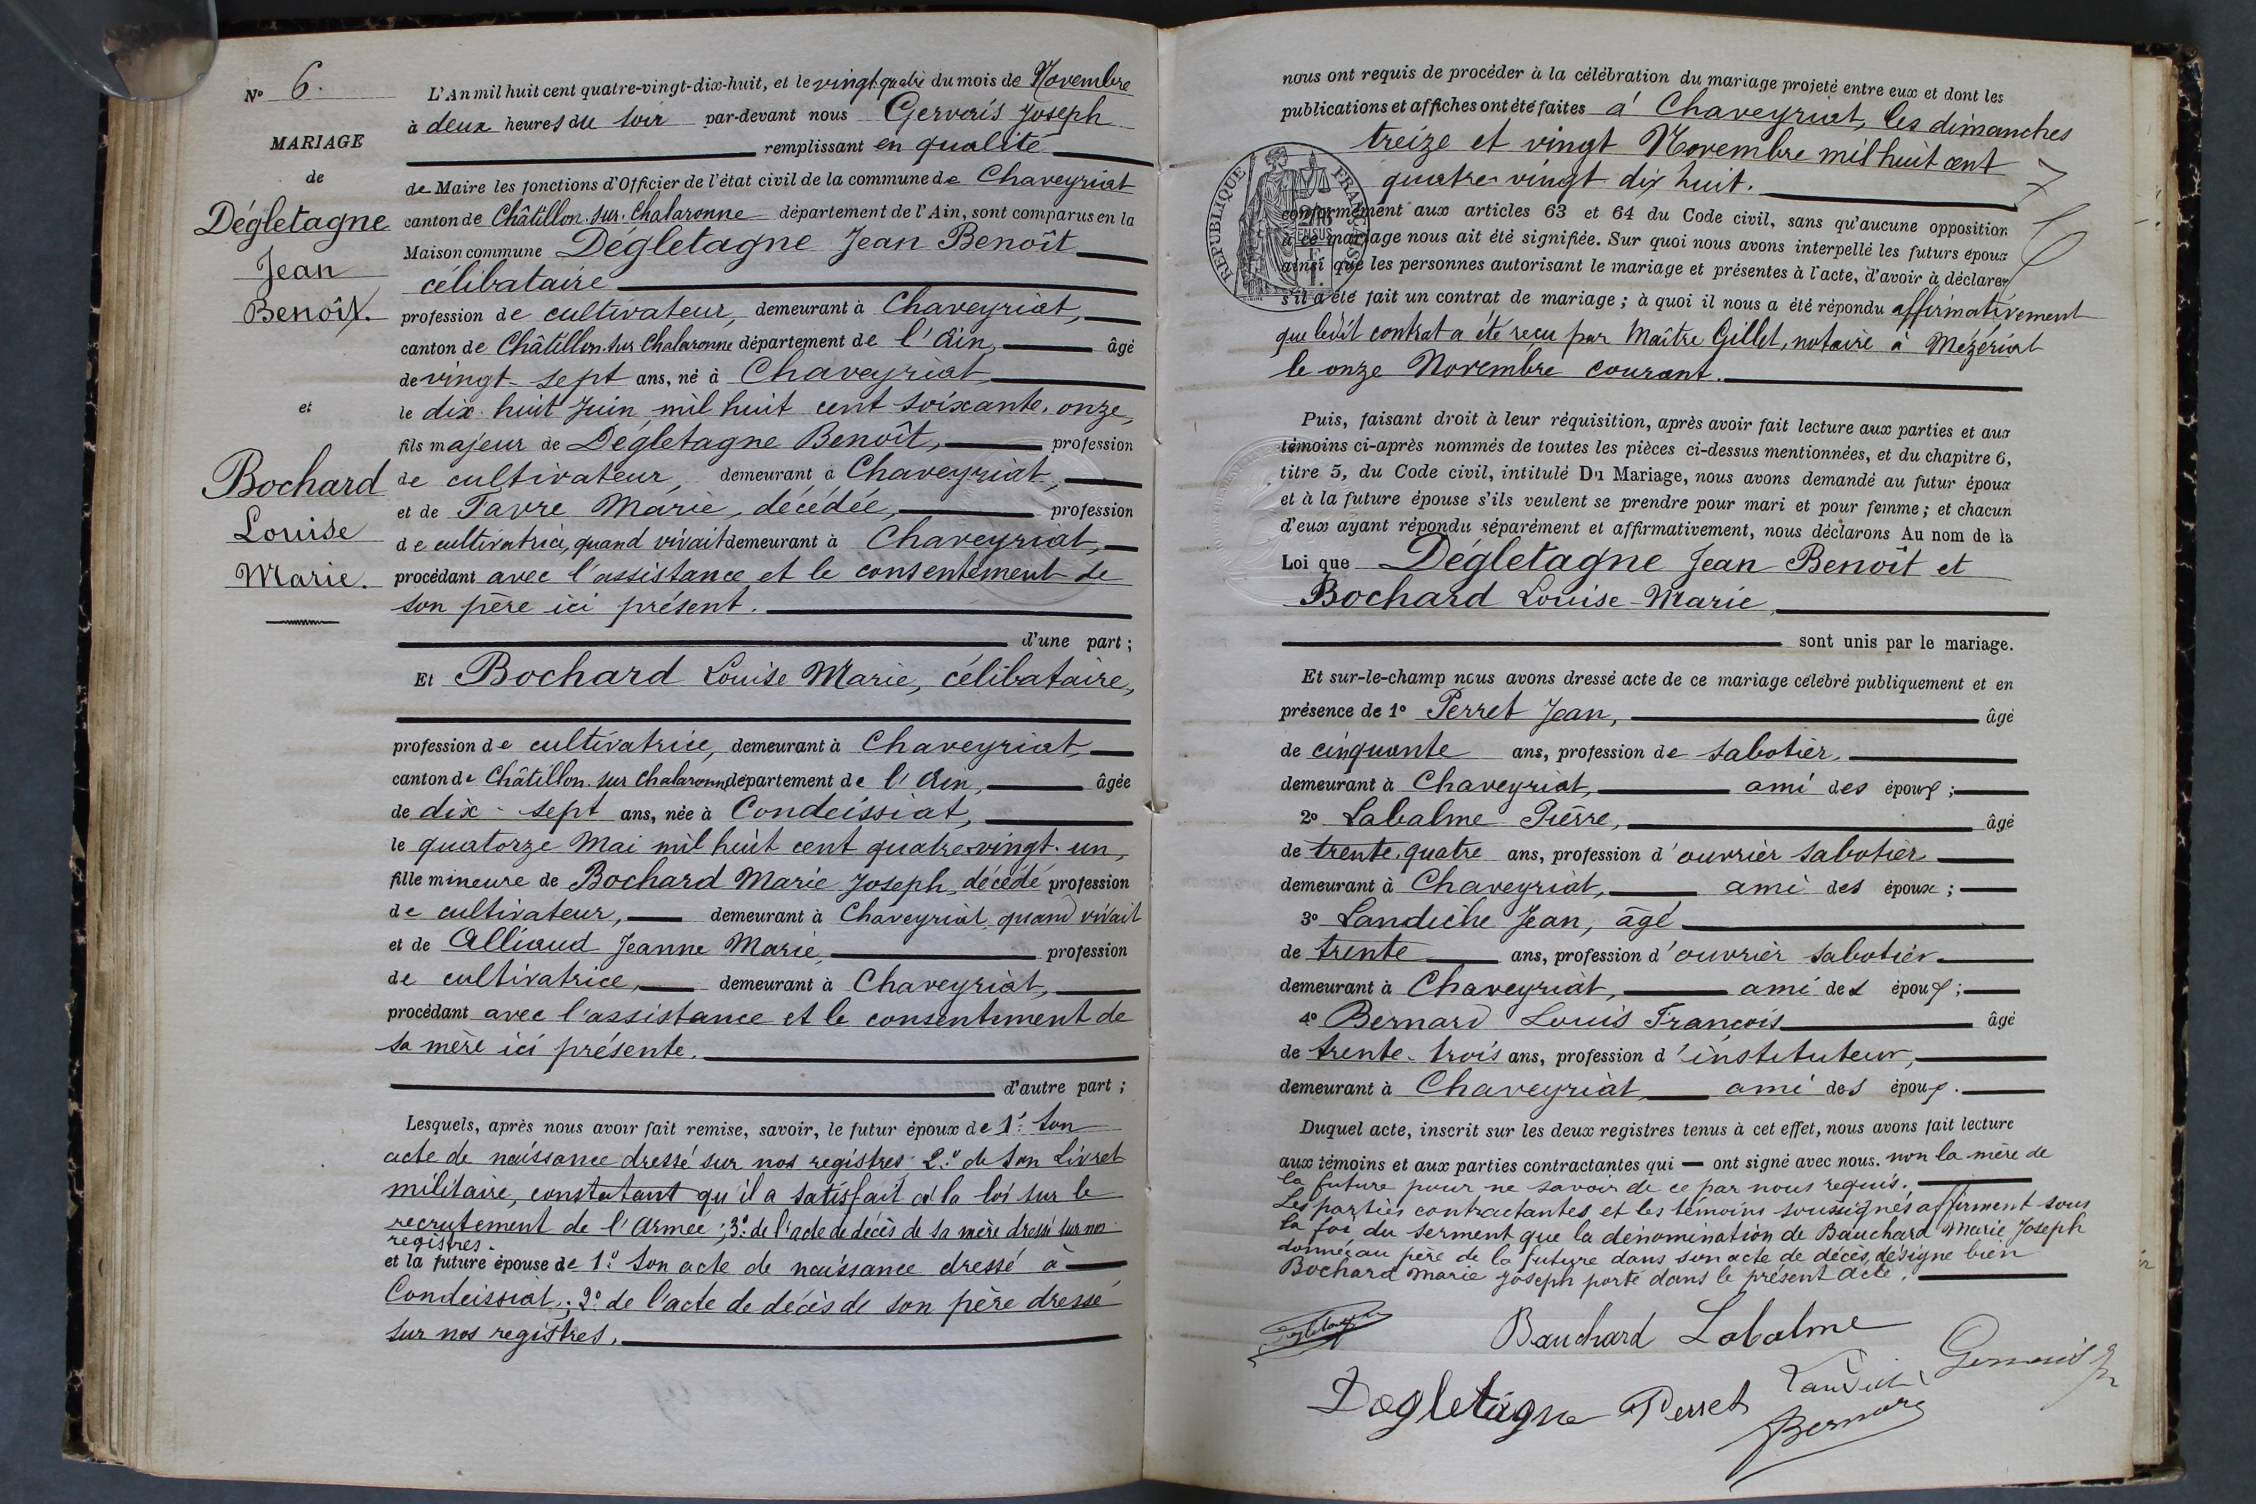 N° 6.
MARIAGE
de
Dégletagne
Jean
Benoît.
et
Bochard
Louise
Marie.
L'An mil huit cent quatre-vingt-dix-huit, et le vingt-quatre du mois de Novembre
à deux heures du soir par-devant nous Gervais Joseph
remplissant en qualité
de Maire les fonctions d'Officier de l'état civil de la commune de Chaveyriat
canton de Châtillon-sur-Chalaronne département de l'Ain, sont comparus en la
Maison commune Dégletagne Jean Benoît
célibataire
profession de cultivateur, demeurant à Chaveyriat,
canton de Châtillon-sur-Chalaronne département de l'Ain, âgé
de vingt-sept ans, né à Chaveyriat,
le dix-huit Juin mil huit cent soixante-onze,
fils majeur de Dégletagne Benoît, profession
de cultivateur, demeurant à Chaveyriat,
et de Favre Marie, décédée, profession
de cultivatrice, quand vivait demeurant à Chaveyriat,
procédant avec l'assistance et le consentement de
son père ici présent.
d'une part ;
Et Bochard Louise Marie, célibataire,
profession de cultivatrice, demeurant à Chaveyriat,
canton de Châtillon-sur-Chalaronne département de l'Ain, âgée
de dix-sept ans, née à Condeissiat,
le quatorze Mai mil huit cent quatre-vingt-un,
fille mineure de Bochard Marie Joseph, décédé profession
de cultivateur, demeurant à Chaveyriat quand vivait
et de Alliaud Jeanne Marie, profession
de cultivatrice, demeurant à Chaveyriat,
procédant avec l'assistance et le consentement de
sa mère ici présente.
d'autre part ;
Lesquels, après nous avoir fait remise, savoir, le futur époux de 1° Son
acte de naissance dressé sur nos registres 2° de son Livret
militaire, constatant qu'il a satisfait à la loi sur le
recrutement de l'Armée ; 3° de l'acte de décès de sa mère dressé sur nos
registres.
et la future épouse de 1° Son acte de naissance dressé à
Condeissiat ; 2° de l'acte de décès de son père dressé
sur nos registres.
nous ont requis de procéder à la célébration du mariage projeté entre eux et dont les
publications et affiches ont été faites à Chaveyriat, les dimanches
treize et vingt Novembre mil huit cent
quatre-vingt-dix huit.
RÉPUBLIQUE FRANÇAISE
conformément aux articles 63 et 64 du Code civil, sans qu'aucune opposition
à ce mariage nous ait été signifiée. Sur quoi nous avons interpellé les futurs époux
ainsi que les personnes autorisant le mariage et présentes à l'acte, d'avoir à déclarer
s'il a été fait un contrat de mariage ; à quoi il nous a été répondu affirmativement
que ledit contrat a été reçu par Maître Gillet, notaire à Mézériat
le onze Novembre courant.
Puis, faisant droit à leur réquisition, après avoir fait lecture aux parties et aux
témoins ci-après nommés de toutes les pièces ci-dessus mentionnées, et du chapitre 6,
titre 5, du Code civil, intitulé Du Mariage, nous avons demandé au futur époux
et à la future épouse s'ils veulent se prendre pour mari et pour femme ; et chacun
d'eux ayant répondu séparément et affirmativement, nous déclarons Au nom de la
Loi que Dégletagne Jean Benoît et
Bochard Louise-Marie,
sont unis par le mariage.
Et sur-le-champ nous avons dressé acte de ce mariage célébré publiquement et en
présence de 1° Perret Jean, âgé
de cinquante ans, profession de sabotier,
demeurant à Chaveyriat, ami des époux ;
2° Labalme Pierre, âgé
de trente-quatre ans, profession d'ouvrier sabotier
demeurant à Chaveyriat, ami des époux ;
3° Landiche Jean, âgé
de trente ans, profession d'ouvrier sabotier
demeurant à Chaveyriat, ami des époux ;
4° Bernard Louis François âgé
de trente-trois ans, profession d'instituteur,
demeurant à Chaveyriat ami des époux.
Duquel acte, inscrit sur les deux registres tenus à cet effet, nous avons fait lecture
aux témoins et aux parties contractantes qui ont signé avec nous. non la mère de
la future pour ne savoir de ce par nous requis.
Les parties contractantes et les témoins soussignés affirment sous
la foi du serment que la dénomination de Bauchard Marie Joseph
donnée au père de la future dans son acte de décès, désigne bien
Bochard Marie Joseph porté dans le présent acte.
Bauchard Labalme
Gervais
Degletagne Perret
Bernard